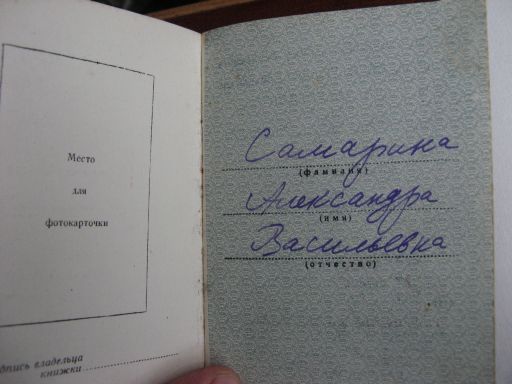 Место
для
фотокарточки
дпись владельца
книжки
Самарина
(фамилия)
Александра
(имя)
Васильевна
(отчество)